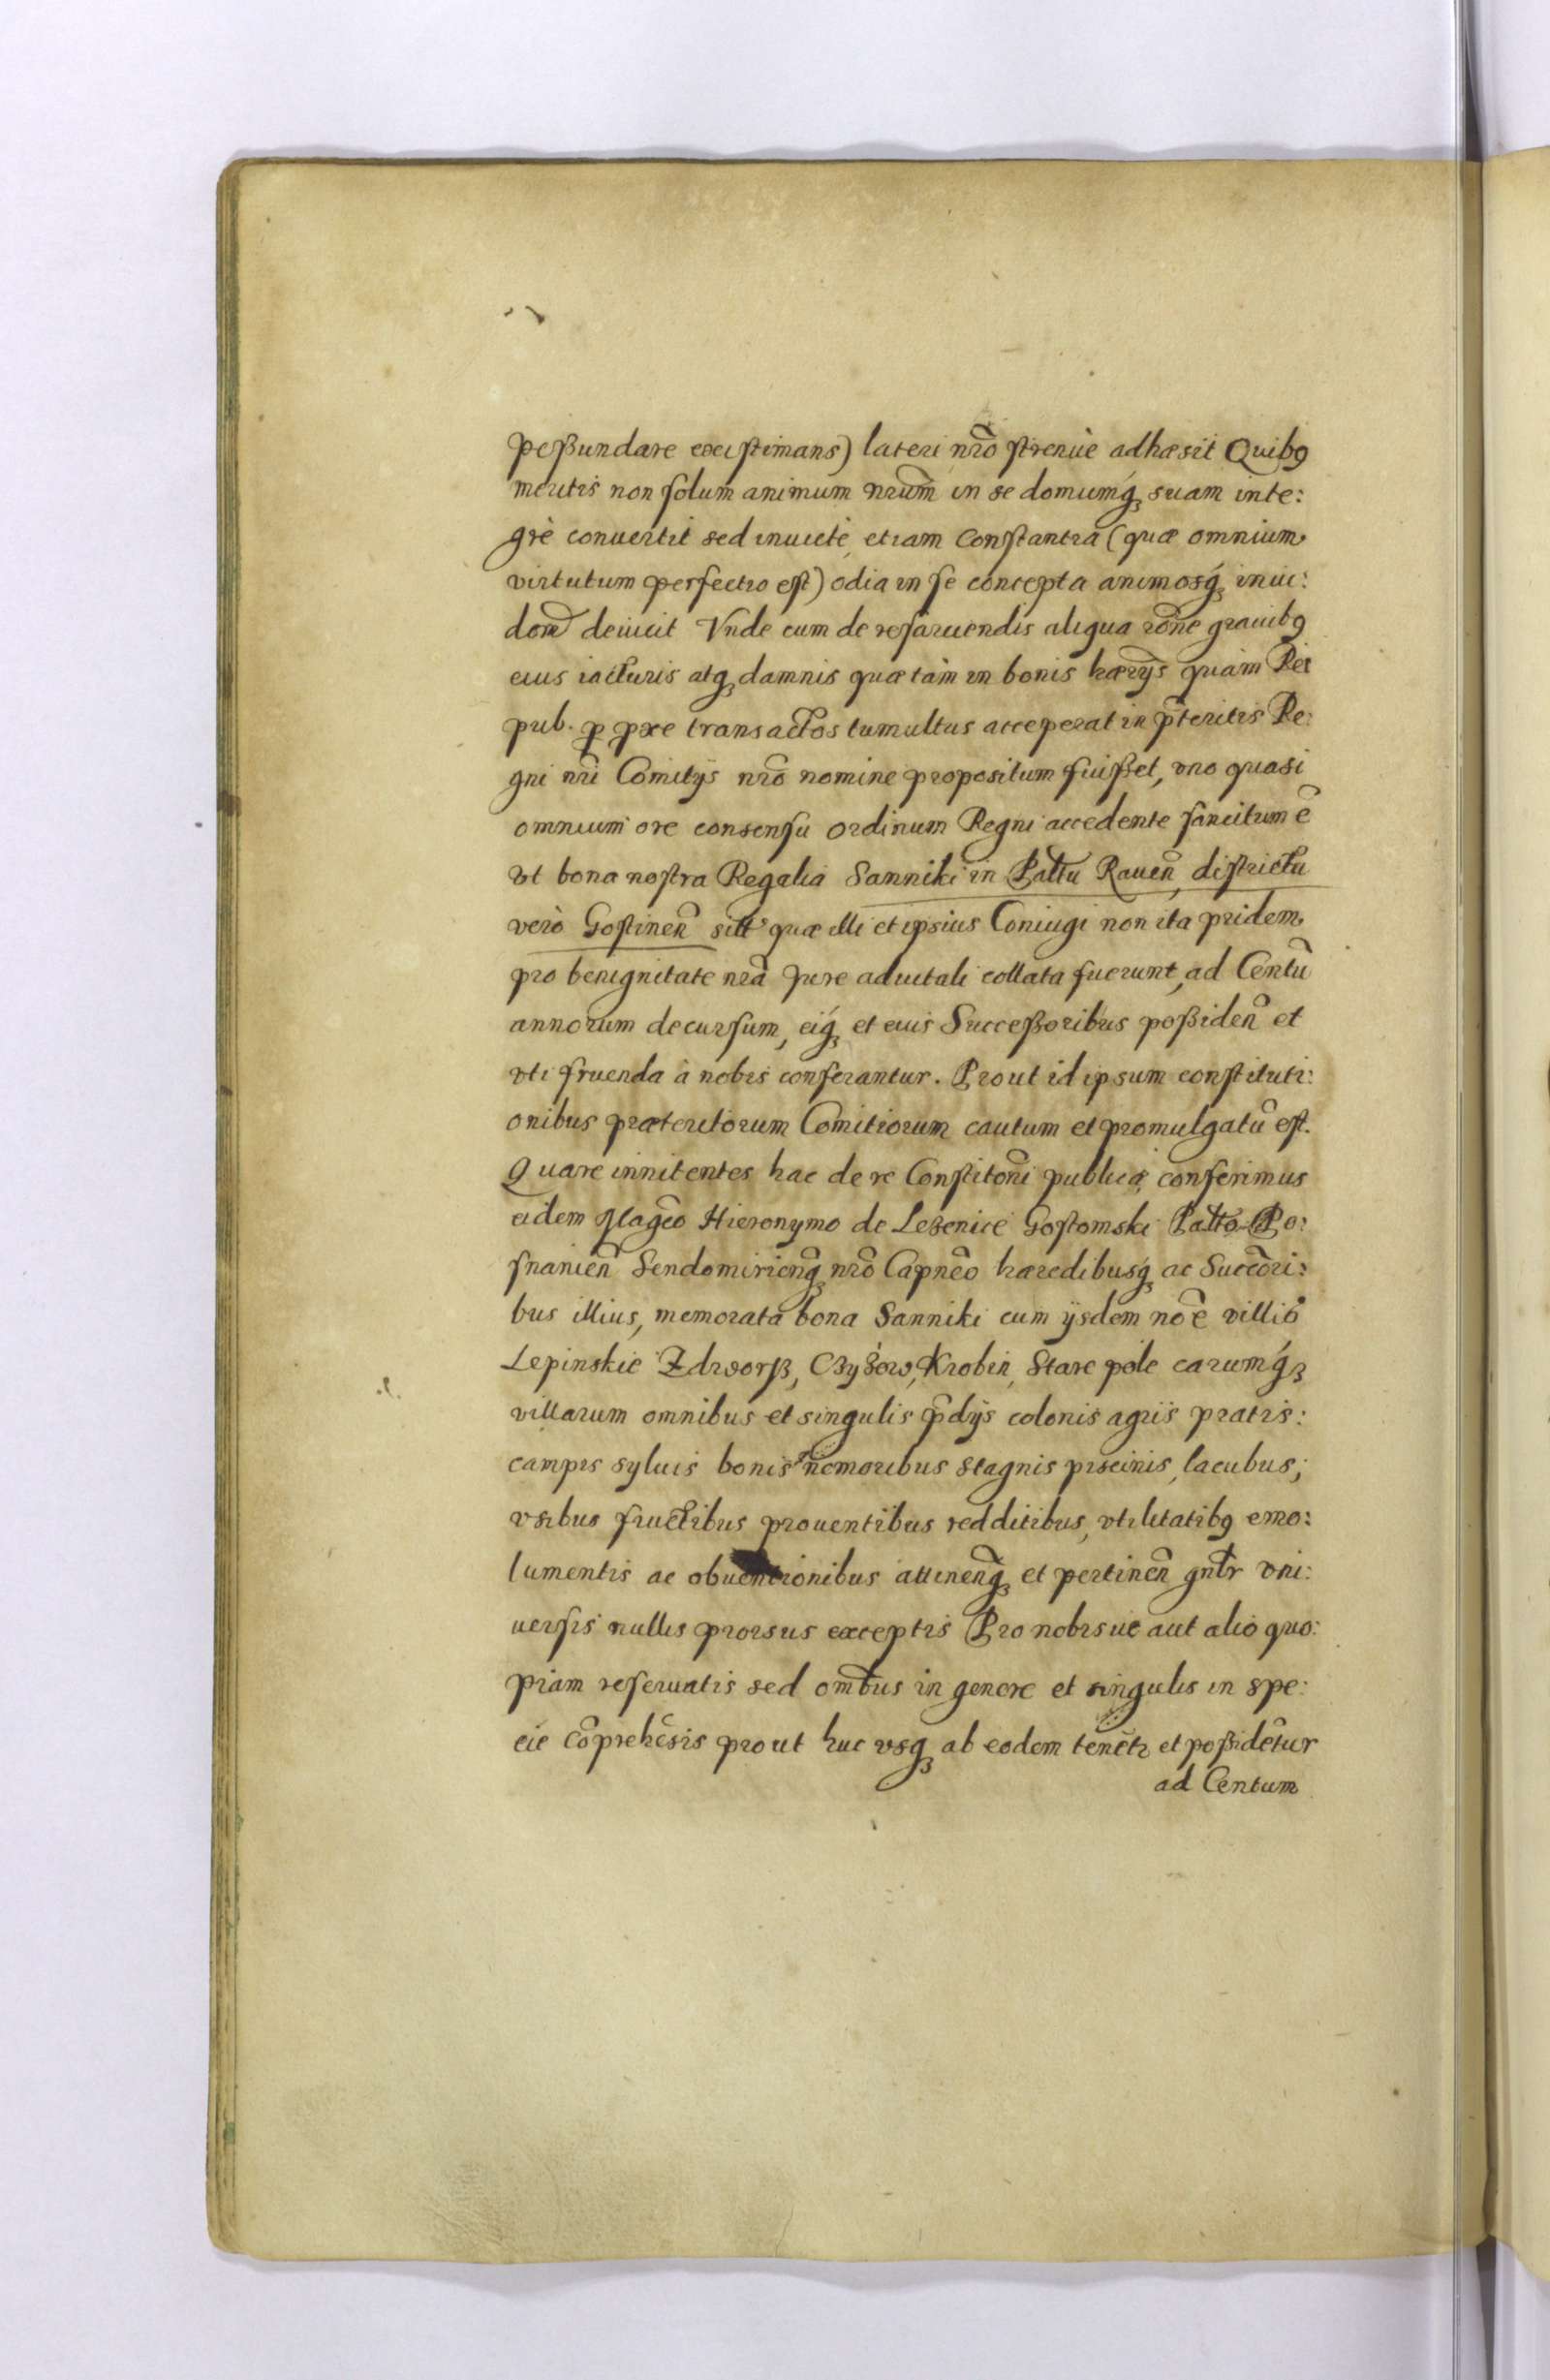 peßundare existimans) lateri nr̃o strenuè adhæsit Quibꝯ
meritis non solum animum nr̃um in se domumqꝫ suam inte:
grè conuertit sed inuicte etiam Constantia (quæ omnium
virtutum perfectio est) odia in se concepta animosqꝫ inui:
dorũ deiucit Vnde cum de resarciendis aliqua rõne grauibꝯ
eius iacturis atqꝫ damnis quæ tàm in bonis hærijs quàm Rei
pub. ꝑ ꝓxe transactos tumultus acceperat in p̃teritis Re:
gni nr̃i Comitijs nr̃o nomine propositum fuißet, vno quasi
omnium ore consensu ordinum Regni accedente sancitum ẽ
vt bona nostra Regalia Sanniki in Pałtu Rauen̄, districtu
verò Gostinen̄ sitt quæ illi et ipsius Coniugi non ita pridem
pro benignitate nr̃a Jure aduitali collata fuerunt, ad Centũ
annorum decursum, eiqꝫ et eius Successoribus poßiden̄ et
vti fruenda à nobis conferantur. Prout id ipsum constituti:
onibus præteritorum Comitiorum cautum et promulgatũ est.
Quare innitentes hac de re Constitoñi publicæ, conferimus
eidem Magc̃o Hieronymo de Leżenice Gostomski Pałto Po:
snanien̄ Sendomirien̄qꝫ nr̃o Capnẽo hæredibusqꝫ ac Succõri:
bus illius, memorata bona Sanniki cum ijsdem noẽ villis
Lepinskie Zdworß, Czyżow, Krobin, Stare pole earumqꝫ
villarum omnibus et singulis p̃dijs colonis agris pratis:
campis syluis bonis nemoribus stagnis piscinis, lacubus,
vsibus fructibus prouentibus redditibus, vtilitatibꝯ emo:
lumentis ac obuentionibus attinen̄qꝫ et pertinen̄ gnl̃r vni:
uersis nullis prorsus exceptis Pro nobisue aut alio quo:
piam reseruatis sed omb̃us in genere et singulis in spe:
cie cõprehẽsis prout huc vsqꝫ ab eodem tenẽtr et poßidẽtur
ad Centum